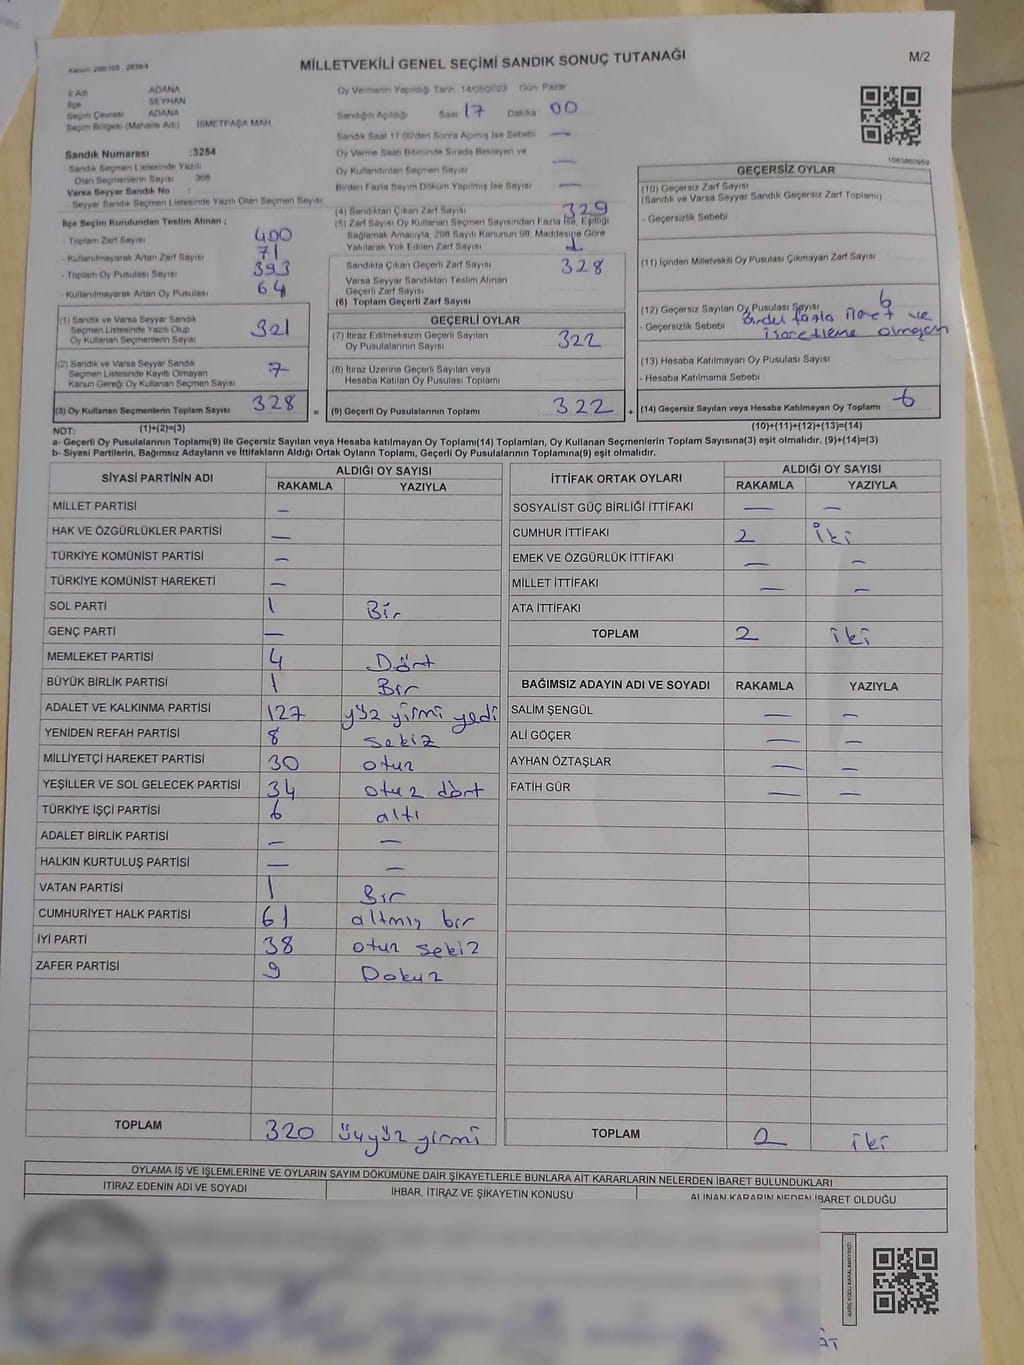 Kanun: 298/105 - 2839/4
MİLLETVEKİLİ GENEL SEÇİMİ SANDIK SONUÇ TUTANAĞI
M/2
İl Adı ADANA
İlçe SEYHAN
Seçim Çevresi ADANA
Seçim Bölgesi (Mahalle Adı) İSMETPAŞA MAH.
Sandık Numarası :3254
- Sandık Seçmen Listesinde Yazılı
Olan Seçmenlerin Sayısı 368
Varsa Seyyar Sandık No :
- Seyyar Sandık Seçmen Listesinde Yazılı Olan Seçmen Sayısı
İlçe Seçim Kurulundan Teslim Alınan ;
- Toplam Zarf Sayısı 400
- Kullanılmayarak Artan Zarf Sayısı 71
- Toplam Oy Pusulası Sayısı 393
- Kullanılmayarak Artan Oy Pusulası 64
(1) Sandık ve Varsa Seyyar Sandık
Seçmen Listesinde Yazılı Olup
Oy Kullanan Seçmenlerin Sayısı 321
(2) Sandık ve Varsa Seyyar Sandık
Seçmen Listesinde Kayıtlı Olmayan
Kanun Gereği Oy Kullanan Seçmen Sayısı 7
(3) Oy Kullanan Seçmenlerin Toplam Sayısı 328 =
(1)+(2)=(3)
Oy Vermenin Yapıldığı Tarih 14/05/2023 Gün Pazar
Sandığın Açıldığı Saat 17 Dakika 00
Sandık Saat 17:00'den Sonra Açılmış İse Sebebi —
Oy Verme Saati Bitiminde Sırada Bekleyen ve
Oy Kullandırılan Seçmen Sayısı —
Birden Fazla Sayım Döküm Yapılmış İse Sayısı —
(4) Sandıktan Çıkan Zarf Sayısı 329
(5) Zarf Sayısı Oy Kullanan Seçmen Sayısından Fazla İse, Eşitliği
Sağlamak Amacıyla, 298 Sayılı Kanunun 98. Maddesine Göre
Yakılarak Yok Edilen Zarf Sayısı 1
Sandıkta Çıkan Geçerli Zarf Sayısı 328
Varsa Seyyar Sandıktan Teslim Alınan
Geçerli Zarf Sayısı
(6) Toplam Geçerli Zarf Sayısı
GEÇERLİ OYLAR
(7) İtiraz Edilmeksizin Geçerli Sayılan
Oy Pusulalarının Sayısı 322
(8) İtiraz Üzerine Geçerli Sayılan veya
Hesaba Katılan Oy Pusulası Toplamı
(9) Geçerli Oy Pusulalarının Toplamı 322 +
1083860959
GEÇERSİZ OYLAR
(10) Geçersiz Zarf Sayısı
(Sandık ve Varsa Seyyar Sandık Geçersiz Zarf Toplamı)
- Geçersizlik Sebebi
(11) İçinden Milletvekili Oy Pusulası Çıkmayan Zarf Sayısı
(12) Geçersiz Sayılan Oy Pusulası Sayısı 6
- Geçersizlik Sebebi fazla ve
işaretleme olmayan
(13) Hesaba Katılmayan Oy Pusulası Sayısı
- Hesaba Katılmama Sebebi
(14) Geçersiz Sayılan veya Hesaba Katılmayan Oy Toplamı 6
(10)+(11)+(12)+(13)=(14)
NOT:
a- Geçerli Oy Pusulalarının Toplamı(9) ile Geçersiz Sayılan veya Hesaba katılmayan Oy Toplamı(14) Toplamları, Oy Kullanan Seçmenlerin Toplam Sayısına(3) eşit olmalıdır. (9)+(14)=(3)
b- Siyasi Partilerin, Bağımsız Adayların ve İttifakların Aldığı Ortak Oyların Toplamı, Geçerli Oy Pusulalarının Toplamına(9) eşit olmalıdır.
SİYASİ PARTİNİN ADI ALDIĞI OY SAYISI
RAKAMLA YAZIYLA
MİLLET PARTİSİ —
HAK VE ÖZGÜRLÜKLER PARTİSİ —
TÜRKİYE KOMÜNİST PARTİSİ —
TÜRKİYE KOMÜNİST HAREKETİ —
SOL PARTİ 1 Bir
GENÇ PARTİ —
MEMLEKET PARTİSİ 4 Dört
BÜYÜK BİRLİK PARTİSİ 1 Bir
ADALET VE KALKINMA PARTİSİ 127 yüz yirmi yedi
YENİDEN REFAH PARTİSİ 8 sekiz
MİLLİYETÇİ HAREKET PARTİSİ 30 otuz
YEŞİLLER VE SOL GELECEK PARTİSİ 34 otuz dört
TÜRKİYE İŞÇİ PARTİSİ 6 altı
ADALET BİRLİK PARTİSİ — —
HALKIN KURTULUŞ PARTİSİ — —
VATAN PARTİSİ 1 Bir
CUMHURİYET HALK PARTİSİ 61 altmış bir
İYİ PARTİ 38 otuz sekiz
ZAFER PARTİSİ 9 Dokuz
TOPLAM 320 üçyüz yirmi
İTTİFAK ORTAK OYLARI ALDIĞI OY SAYISI
RAKAMLA YAZIYLA
SOSYALİST GÜÇ BİRLİĞİ İTTİFAKI — —
CUMHUR İTTİFAKI 2 iki
EMEK VE ÖZGÜRLÜK İTTİFAKI — —
MİLLET İTTİFAKI — —
ATA İTTİFAKI
TOPLAM 2 iki
BAĞIMSIZ ADAYIN ADI VE SOYADI RAKAMLA YAZIYLA
SALİM ŞENGÜL — —
ALİ GÖÇER — —
AYHAN ÖZTAŞLAR — —
FATİH GÜR — —
TOPLAM 2 iki
OYLAMA İŞ VE İŞLEMLERİNE VE OYLARIN SAYIM DÖKÜMÜNE DAİR ŞİKAYETLERLE BUNLARA AİT KARARLARIN NELERDEN İBARET BULUNDUKLARI
İTİRAZ EDENİN ADI VE SOYADI İHBAR, İTİRAZ VE ŞİKAYETİN KONUSU ALINAN KARARIN NEDEN İBARET OLDUĞU